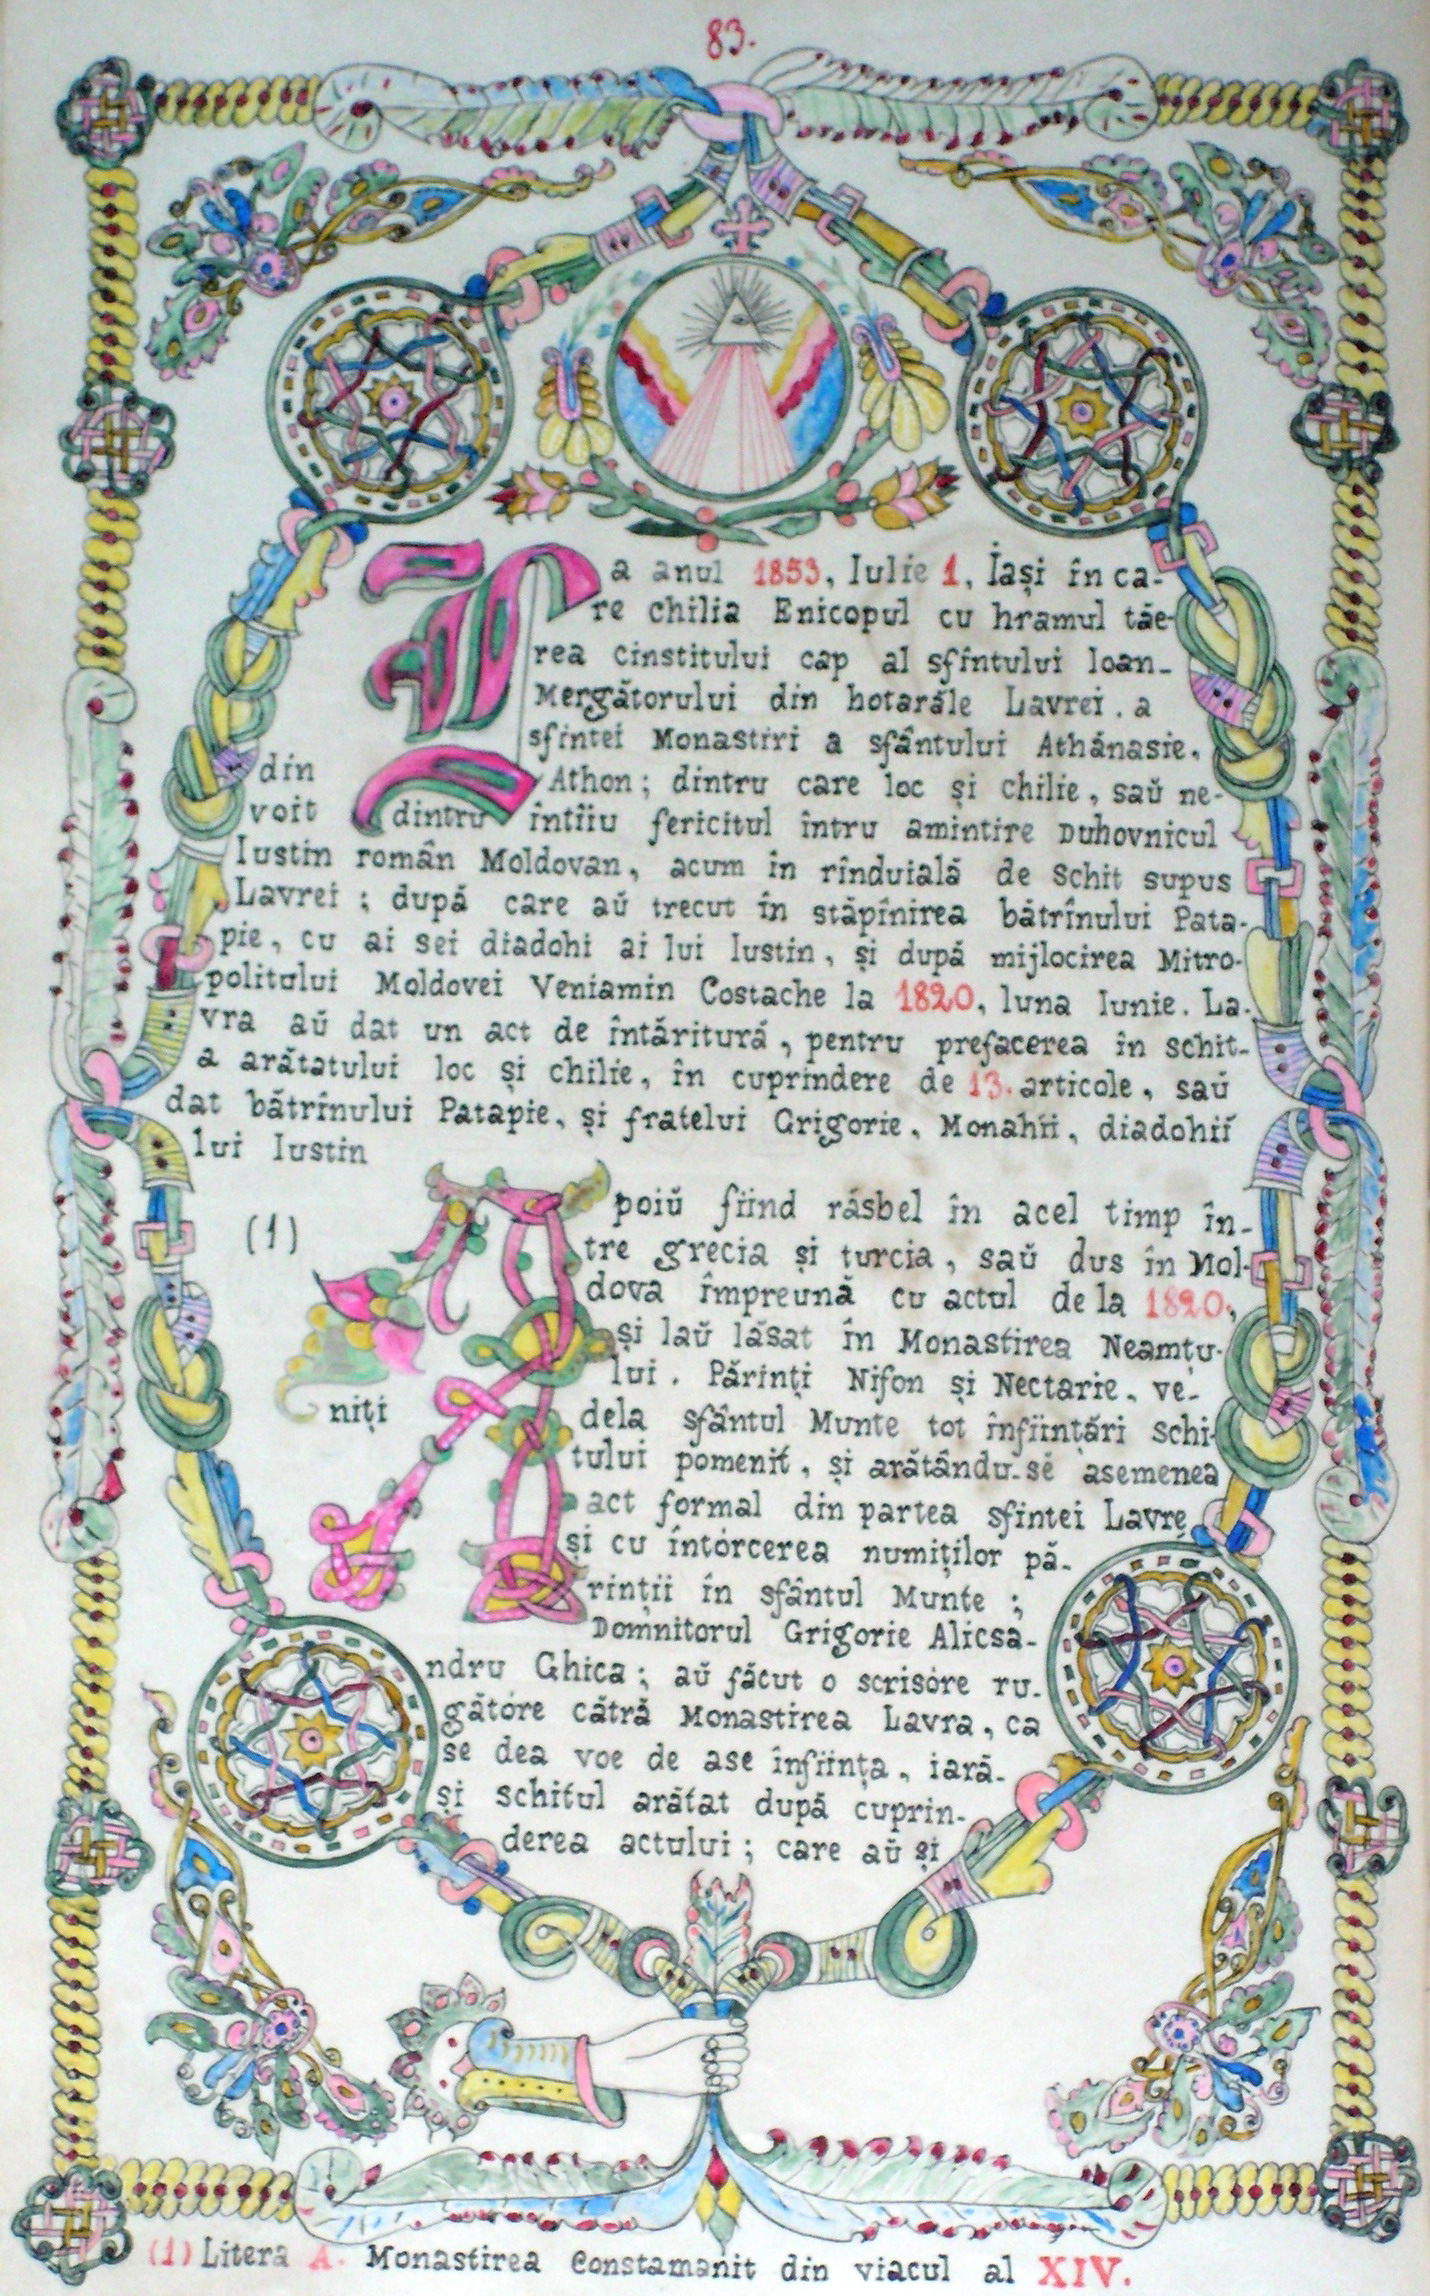 83.
La anul 1853, Iulie 1, Iași în ca-
re chilia Enicopul cu hramul tăe-
rea cinstitului cap al sfîntului Ioan-
Mergătorului din hotarăle Lavrei. a
sfintei Monastiri a sfântului Athánasie.
din Athon; dintru care loc și chilie, saŭ ne-
voit dintru întîiu fericitul întru amintire Duhovnicul
Iustin român Moldovan, acum în rînduială de Schit supus
Lavrei; după care aŭ trecut în stăpînirea bătrînului Pata-
pie, cu ai sei diadohi ai lui Iustin, și după mijlocirea Mitro-
politului Moldovei Veniamin Costache la 1820, luna Iunie. La-
vra aŭ dat un act de întăritură, pentru prefacerea în schit-
a arătatului loc și chilie, în cuprindere de 13. articole, saŭ
dat bătrînului Patapie, și fratelui Grigorie, Monahii, diadohií
lui Iustin
(1) Apoiŭ fiind răsbel în acel timp în-
tre grecia și turcia, saŭ dus în Mol-
dova împreună cu actul de la 1820,
și laŭ lăsat în Monastirea Neamțu-
lui. Părinți Nifon și Nectarie, ve-
niți dela sfântul Munte tot înființări schi-
tului pomenit, și arătându-sé asemenea
act formal din partea sfintei Lavre
și cu întórcerea numiților pă-
rinții în sfântul Munte;
Domnitorul Grigorie Alicsa-
ndru Ghica; aŭ făcut o scrisóre ru-
gătóre cătră Monastirea Lavra, ca
se dea voe de ase înființa, iară-
și schitul arătat după cuprin-
derea actului; care aŭ și
(1) Litera A. Monastirea Constamanit din viacul al XIV.